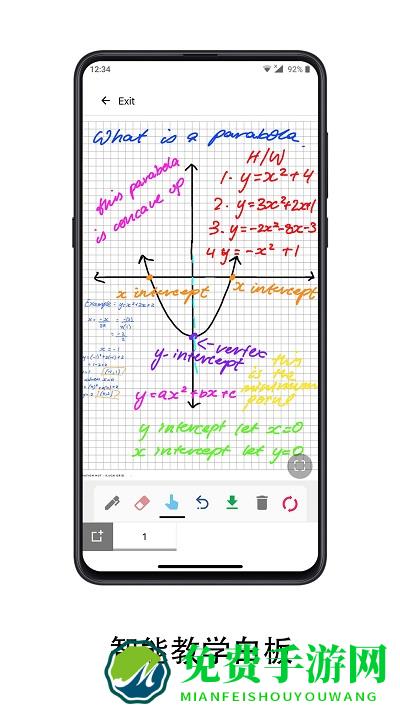 12:34
92%
Exit
What is a parabola.
H/W
1. y=x²+4
2. y=3x²+2x+1
3. y=-2x²-8x-3
4 y=-x²+1
this parabola
is concave up
x intercept
x intercept
Example: y=x²+2x+2
x = -1
vertex
y-intercept
this
is the
minimum
point
y=ax²+bx+c
y intercept let x=0
x intercept let y=0
1
智能教学白板
免费手游网
MIANFEISHOUYOUWANG